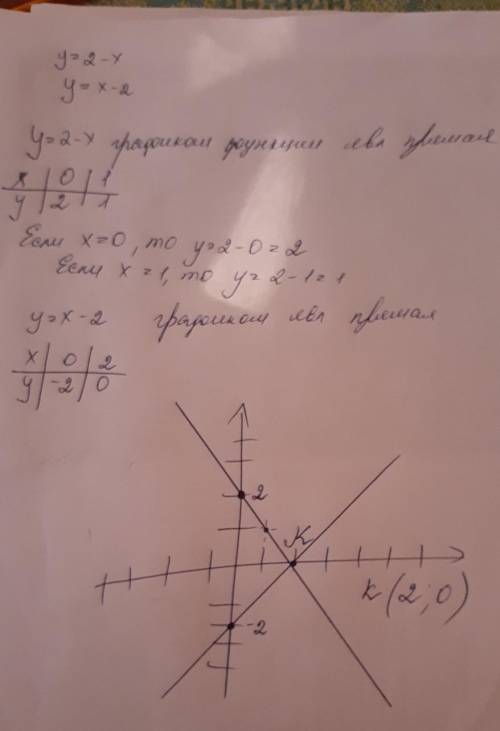 y=2-x
y=x-2
y=2-x графиком функции явл прямая
x | 0 | 1
y | 2 | 1
Если x=0, то y=2-0=2
Если x=1, то y=2-1=1
y=x-2 графиком явл прямая
x | 0 | 2
y | -2 | 0
2
K
K(2;0)
-2